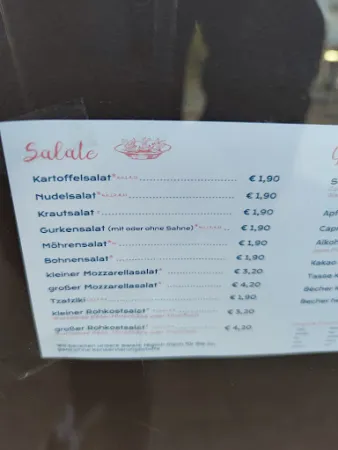 Salate
Kartoffelsalat* .......... € 1,90
Nudelsalat* .......... € 1,90
Krautsalat .......... € 1,90
Gurkensalat (mit oder ohne Sahne)* .......... € 1,90
Möhrensalat* .......... € 1,90
Bohnensalat* .......... € 1,90
kleiner Mozzarellasalat* .......... € 3,20
großer Mozzarellasalat* .......... € 4,20
Tzatziki .......... € 1,90
kleiner Rohkostsalat* .......... € 3,20
großer Rohkostsalat* .......... € 4,20
Wir bereiten unsere Salate täglich frisch für Sie zu
Apf
Cap
Alkoh
Kakao
Tasse
Becher
Becher